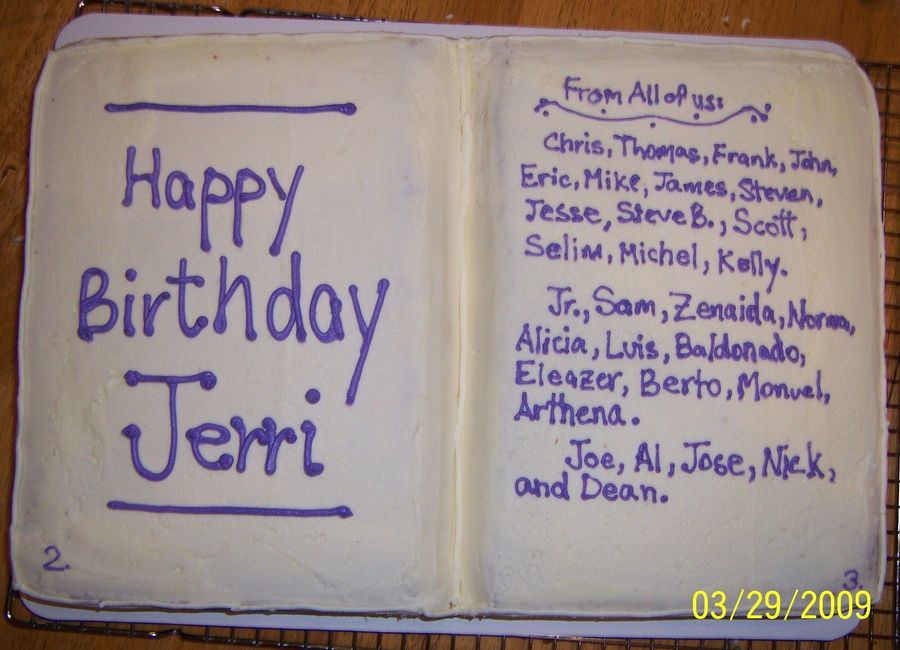 Happy
Birthday
Jerri
2.
From All of us:
Chris, Thomas, Frank, John,
Eric, Mike, James, Steven,
Jesse, Steve B., Scott,
Selim, Michel, Kelly.
Jr., Sam, Zenaida, Norma,
Alicia, Luis, Baldonado,
Eleazer, Berto, Manuel,
Arthena.
Joe, Al, Jose, Nick,
and Dean.
3.
03/29/2009